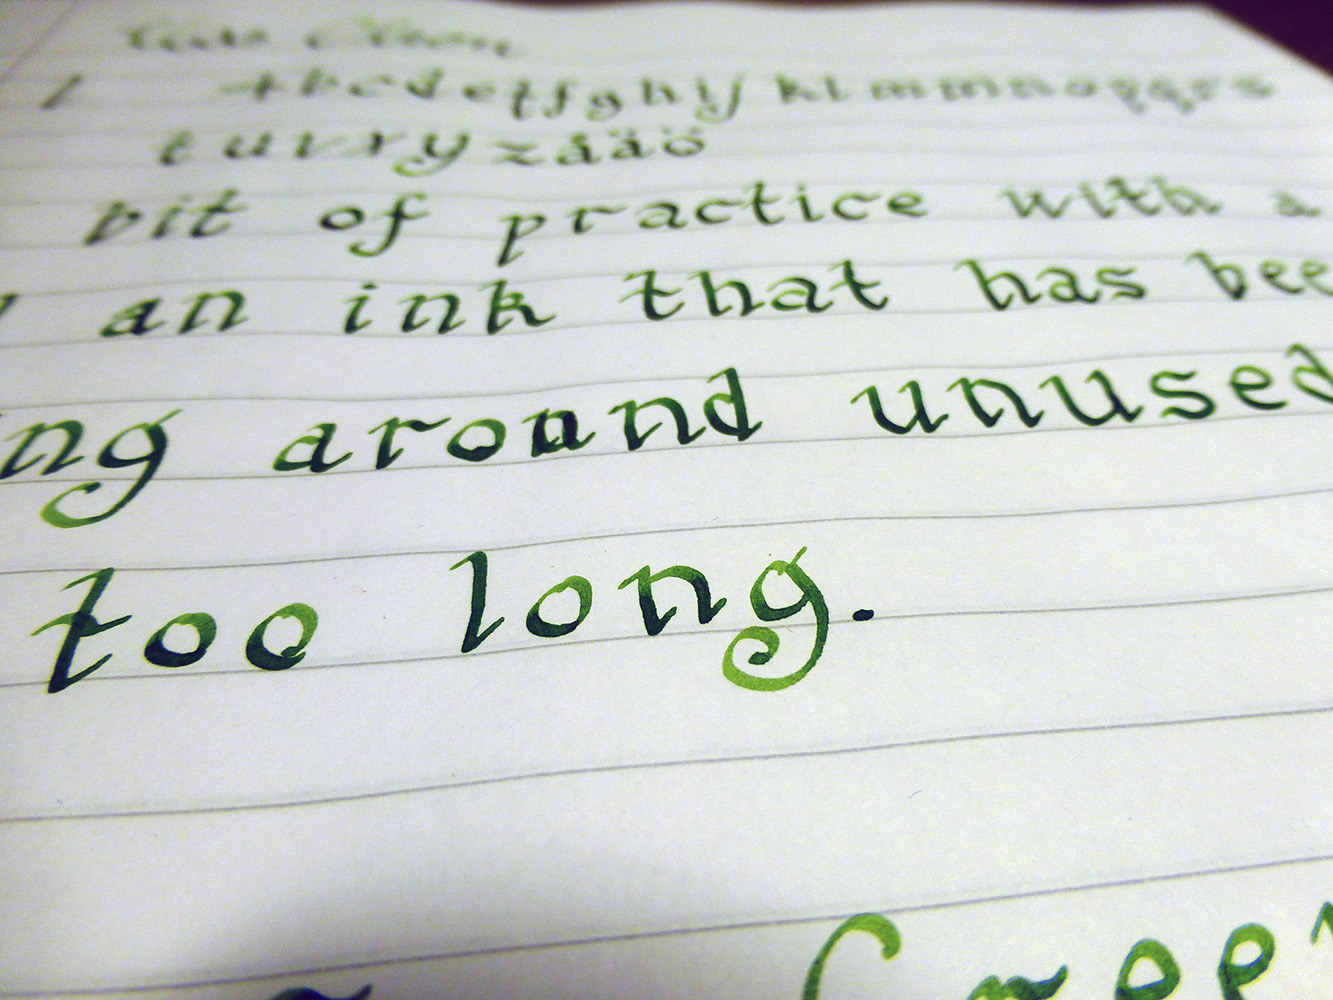 abcdeffghij kl mmnopqrs
tuvxyzåäö
bit of practice with a
an ink that has bee
ng around unused
too long.